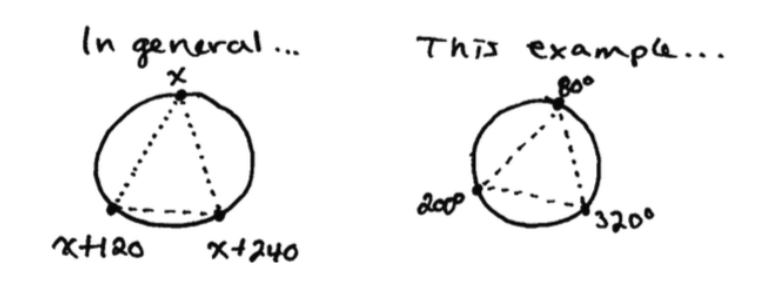 In general...
x
x+120
x+240
This example...
80°
200°
320°